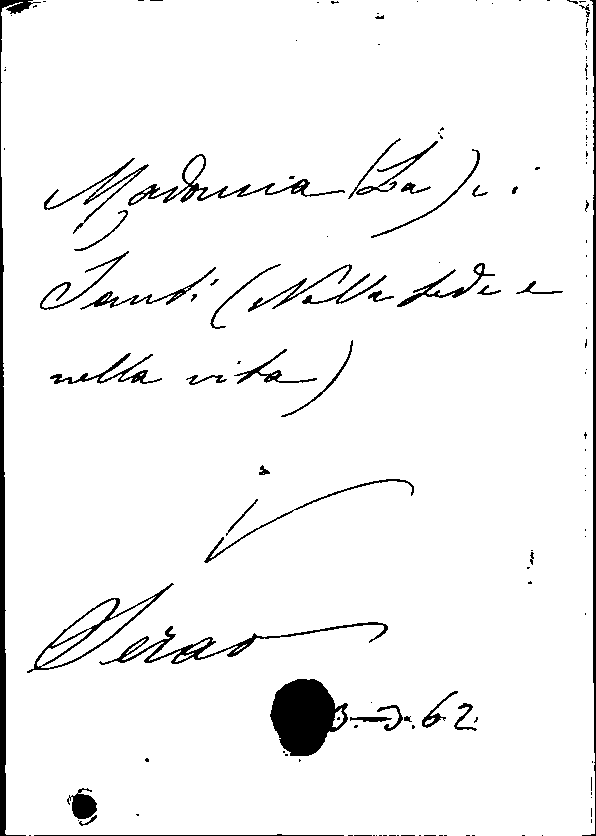 Madonna (La) e i
Santi (Nella fede e
nella vita)
V
Serao
B-D.62